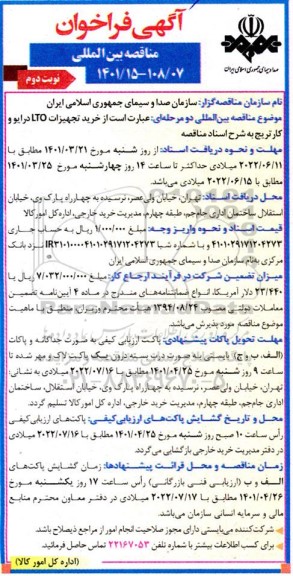 آگهی فراخوان
مناقصه بین المللی
۱۴۰۱/۱۵-۱۰۸/۰۷
نوبت دوم
صدا و سیمای جمهوری اسلامی ایران
نام سازمان مناقصه‌گزار: سازمان صدا و سیمای جمهوری اسلامی ایران
موضوع مناقصه بین‌المللی دو مرحله‌ای: عبارت است از خرید تجهیزات LTO درایو و
کارتریج به شرح اسناد مناقصه
مهلت و نحوه دریافت اسناد: از روز شنبه مورخ ۱۴۰۱/۰۳/۲۱ مطابق با
۲۰۲۲/۰۶/۱۱ میلادی حداکثر تا ساعت ۱۴ روز چهارشنبه مورخ ۱۴۰۱/۰۳/۲۵
مطابق با ۲۰۲۲/۰۶/۱۵ میلادی می‌باشد.
محل دریافت اسناد: تهران، خیابان ولی عصر، نرسیده به چهارراه پارک وی، خیابان
استقلال، ساختمان اداری جام‌جم، طبقه چهارم، مدیریت خرید خارجی، اداره کل امور کالا
قیمت اسناد و نحوه واریز وجه: مبلغ ۷/۰۰۰/۰۰۰ ریال به حساب جاری
۴۱۰۱۰۲۹۱۷۱۲۰۴۲۷۳ و یا شماره شبا IR۳۱۰۱۰۰۰۰۴۱۰۱۰۲۹۱۷۱۲۰۴۲۷۳ نزد بانک
مرکزی به‌نام سازمان صدا و سیمای جمهوری اسلامی ایران
میزان تضمین شرکت در فرآیند ارجاع کار: مبلغ ۷/۰۳۲/۰۰۰/۰۰۰ ریال یا
۲۳/۴۴۰ دلار آمریکا، انواع ضمانتنامه‌های مندرج در ماده ۴ آیین‌نامه تضمین
معاملات دولتی مصوب ۱۳۹۴/۰۸/۲۴ هیأت محترم وزیران، منطبق با ماهیت
موضوع مناقصه مورد پذیرش می‌باشد.
مهلت تحویل پاکات پیشنهادی: پاکت ارزیابی کیفی به صورت جداگانه و پاکات
(الف، ب و ج) بایستی به صورت دربسته درون یک پاکت لاک و مهر شده تا
ساعت ۹ روز شنبه مورخ ۱۴۰۱/۰۴/۲۵ مطابق با ۲۰۲۲/۰۷/۱۶ میلادی به نشانی:
تهران، خیابان ولی عصر، نرسیده به چهارراه پارک وی، خیابان استقلال، ساختمان
اداری جام‌جم، طبقه چهارم، مدیریت خرید خارجی، اداره کل امور کالا تسلیم گردد.
محل و تاریخ گشایش پاکت‌های ارزیابی‌کیفی: پاکت‌های ارزیابی کیفی
رأس ساعت ۱۰ صبح روز شنبه مورخ ۱۴۰۱/۰۴/۲۵ مطابق با ۲۰۲۲/۰۷/۱۶ میلادی
در دفتر مدیریت خرید خارجی بازگشایی می‌گردد.
زمان مناقصه و محل قرائت پیشنهادها: زمان گشایش پاکت‌های
الف و ب (ارزیابی فنی بازرگانی) رأس ساعت ۱۷ روز یکشنبه مورخ
۱۴۰۱/۰۴/۲۶ مطابق با ۲۰۲۲/۰۷/۱۷ میلادی در دفتر معاون محترم منابع
مالی و سرمایه انسانی سازمان می‌باشد.
شرکت‌کننده می‌بایستی دارای مجوز صلاحیت انجام امور از مراجع ذیصلاح باشد.
برای کسب اطلاعات بیشتر با شماره تلفن ۲۲۱۶۷۰۵۳ تماس حاصل فرمائید.
(اداره کل امور کالا)